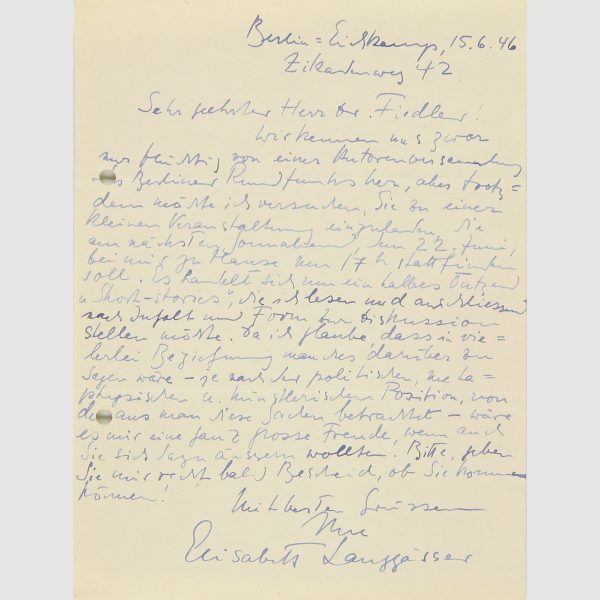 Berlin=Eichkamp, 15.6.46
Zikadenweg 42
Sehr geehrter Herr Dr. Fiedler!
Wir kennen uns zwar
nur flüchtig von einer Autorenversammlung
des Berliner Rundfunks her, aber trotz=
dem möchte ich versuchen, Sie zu einer
kleinen Veranstaltung einzuladen, die
am nächsten Sonnabend, den 22. Juni,
bei mir zu Hause um 17h stattfinden
soll. Es handelt sich um ein halbes Dutzend
„Short-stories", die ich lesen und anschliessend
nach Inhalt und Form zur Diskussion
stellen möchte. Da ich glaube, dass in vie=
lerlei Beziehung manches darüber zu
sagen wäre – je nach der politischen, meta=
physischen u. künstlerischen Position, von
der aus man diese Sachen betrachtet – wäre
es mir eine ganz grosse Freude, wenn auch
Sie sich dazu äussern wollten. Bitte, geben
Sie mir recht bald Bescheid, ob Sie kommen
können!
Mit besten Grüssen
Ihre
Elisabeth Langgässer